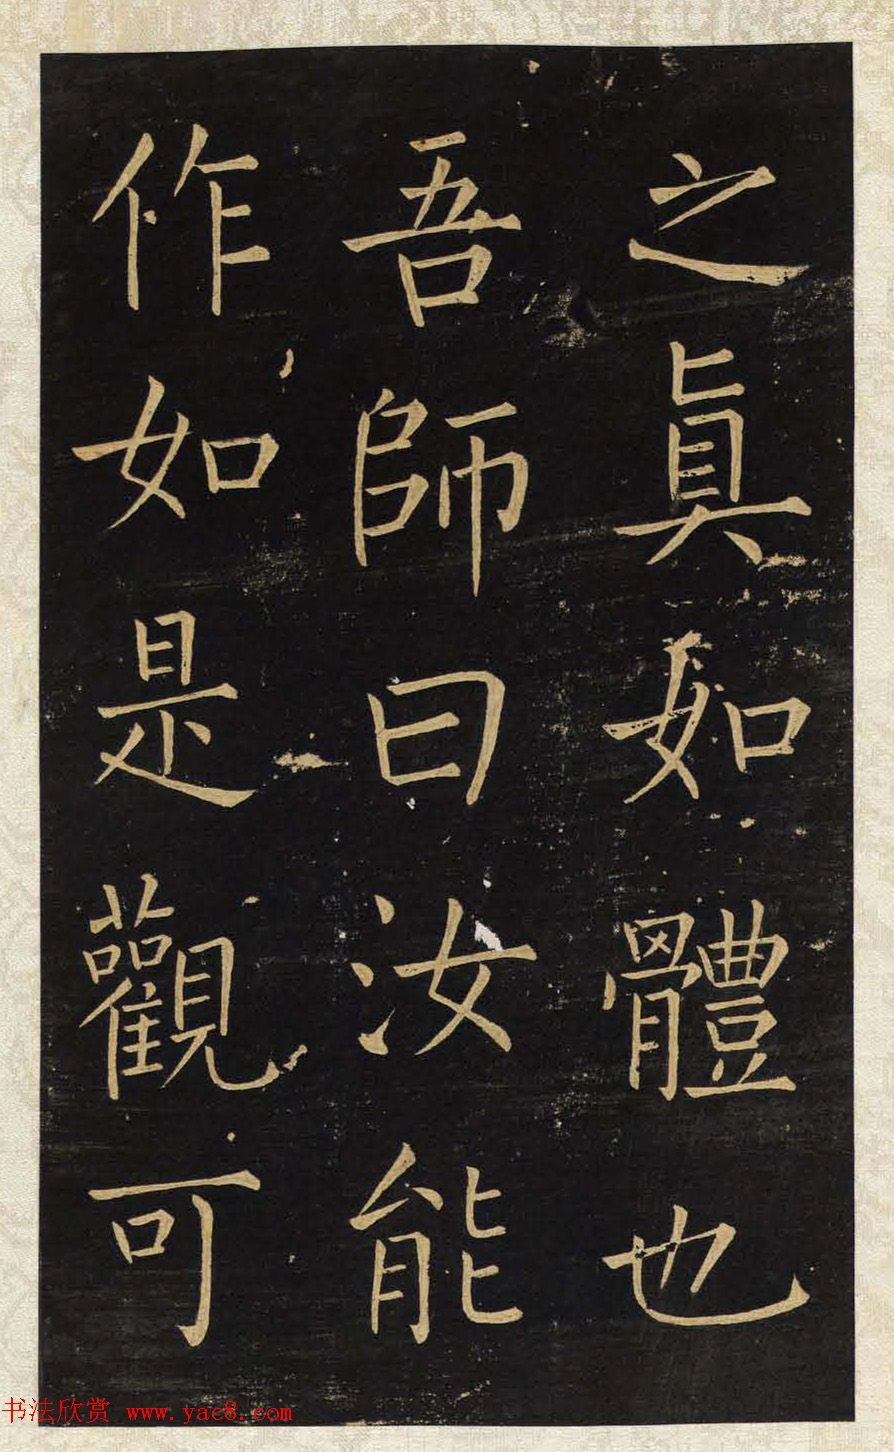 之真如體也
吾師曰汝能
作如是觀可
书法欣赏 www.yac8.com